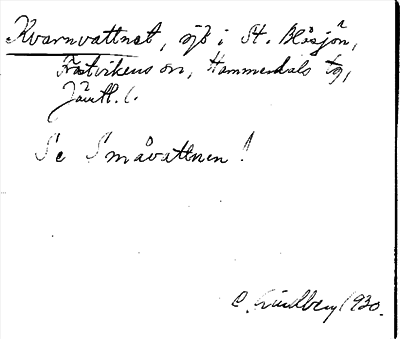 Kvarnvattnet, sjö i St. Blåsjön,
Frostvikens sn, Hammerdals tg,
Jämtl. l.
Se Småvattnen!
C. Lindberg 1930.